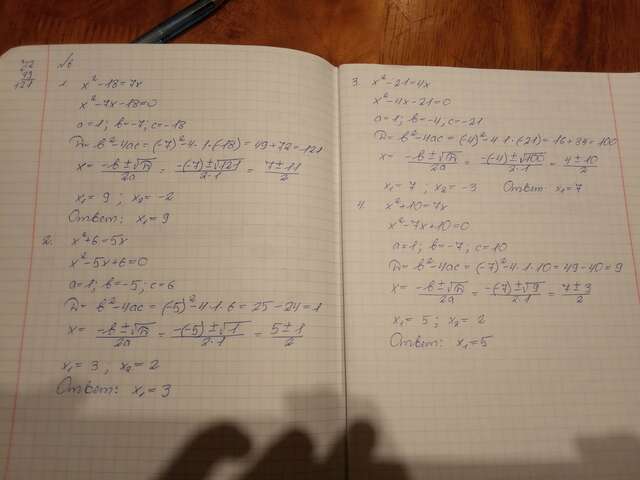 72
49
121
№6
1. x²-18=7x
x²-7x-18=0
a=1; b=-7; c=-18
D= b²-4ac=(-7)²-4·1·(-18)=49+72=121
x= -b±√D/2a = -(-7)±√121/2·1 = 7±11/2
x₁= 9 ; x₂= -2
Ответ: x₁= 9
2. x²+6=5x
x²-5x+6=0
a=1; b=-5; c=6
D= b²-4ac= (-5)²-4·1·6= 25-24=1
x= -b±√D/2a = -(-5)±√1/2·1 = 5±1/2
x₁= 3 ; x₂= 2
Ответ: x₁= 3
3. x²-21=4x
x²-4x-21=0
a=1; b=-4, c=-21
D= b²-4ac= (-4)²-4·1·(-21)= 16+84=100
x= -b±√D/2a = -(-4)±√100/2·1 = 4±10/2
x₁= 7 ; x₂= -3 Ответ: x₁=7
4. x²+10=7x
x²-7x+10=0
a=1; b=-7; c=10
D= b²-4ac= (-7)²-4·1·10=49-40=9
x= -b±√D/2a = -(-7)±√9/2·1 = 7±3/2
x₁= 5 ; x₂= 2
Ответ: x₁=5